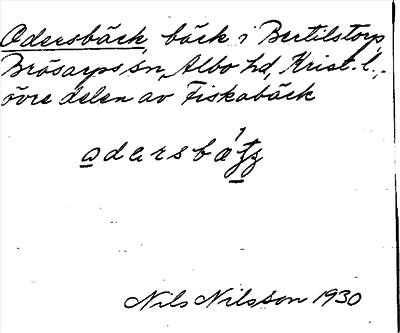 Odersbäck, bäck i Bertilstorp,
Brösarps sn, Albo hd, Krist. l.,
övre delen av Fiskabäck
Nils Nilsson 1930